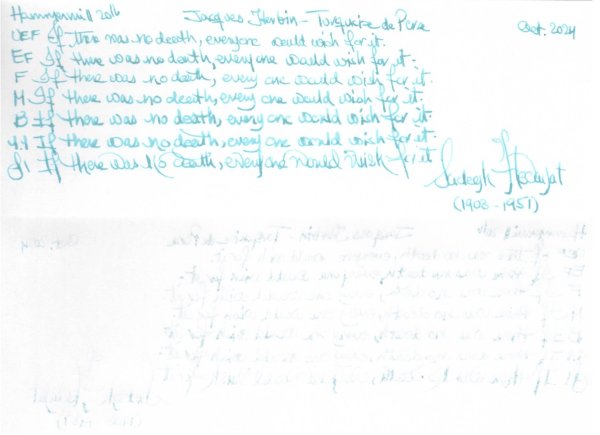 Hammermill 20lb Jacques Herbin - Turquoise de Perse Oct. 2024
UEF If there was no death, everyone would wish for it.
EF If there was no death, everyone would wish for it.
F If there was no death, every one would wish for it.
M If there was no death, every one would wish for it.
B If there was no death, every one would wish for it.
1.1 If there was no death, every one would wish for it.
If there was no death, everyone would wish for it
Sadegh Hedayat
(1903 - 1951)